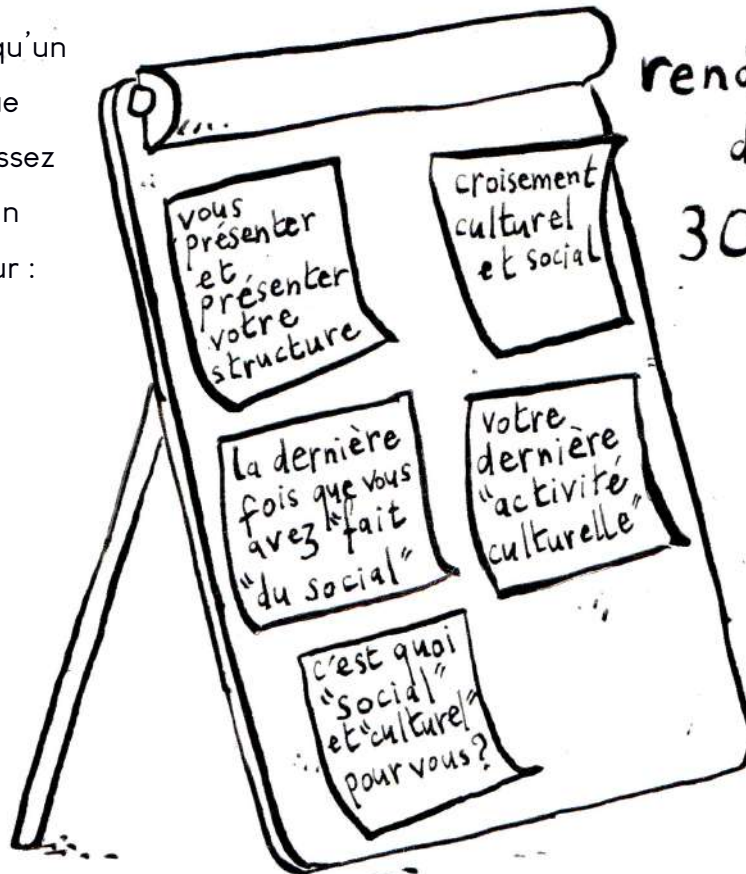 qu'un
ssez
n
ur :
vous
présenter
et
présenter
votre
structure
croisement
culturel
et social
la dernière
fois que vous
avez "fait
"du social"
votre
dernière
"activité
culturelle"
c'est quoi
"social"
et "culturel"
pour vous?
rend
d
30